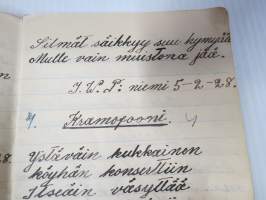 Silmät säikkyy suu hymyää
Mulle vain muistona jää.
I. W. P. niemi 5-2-28.
28.
Kramofooni.
Ystäväin kukkainen
köyhän konserttiin
Itseäin väsyttää